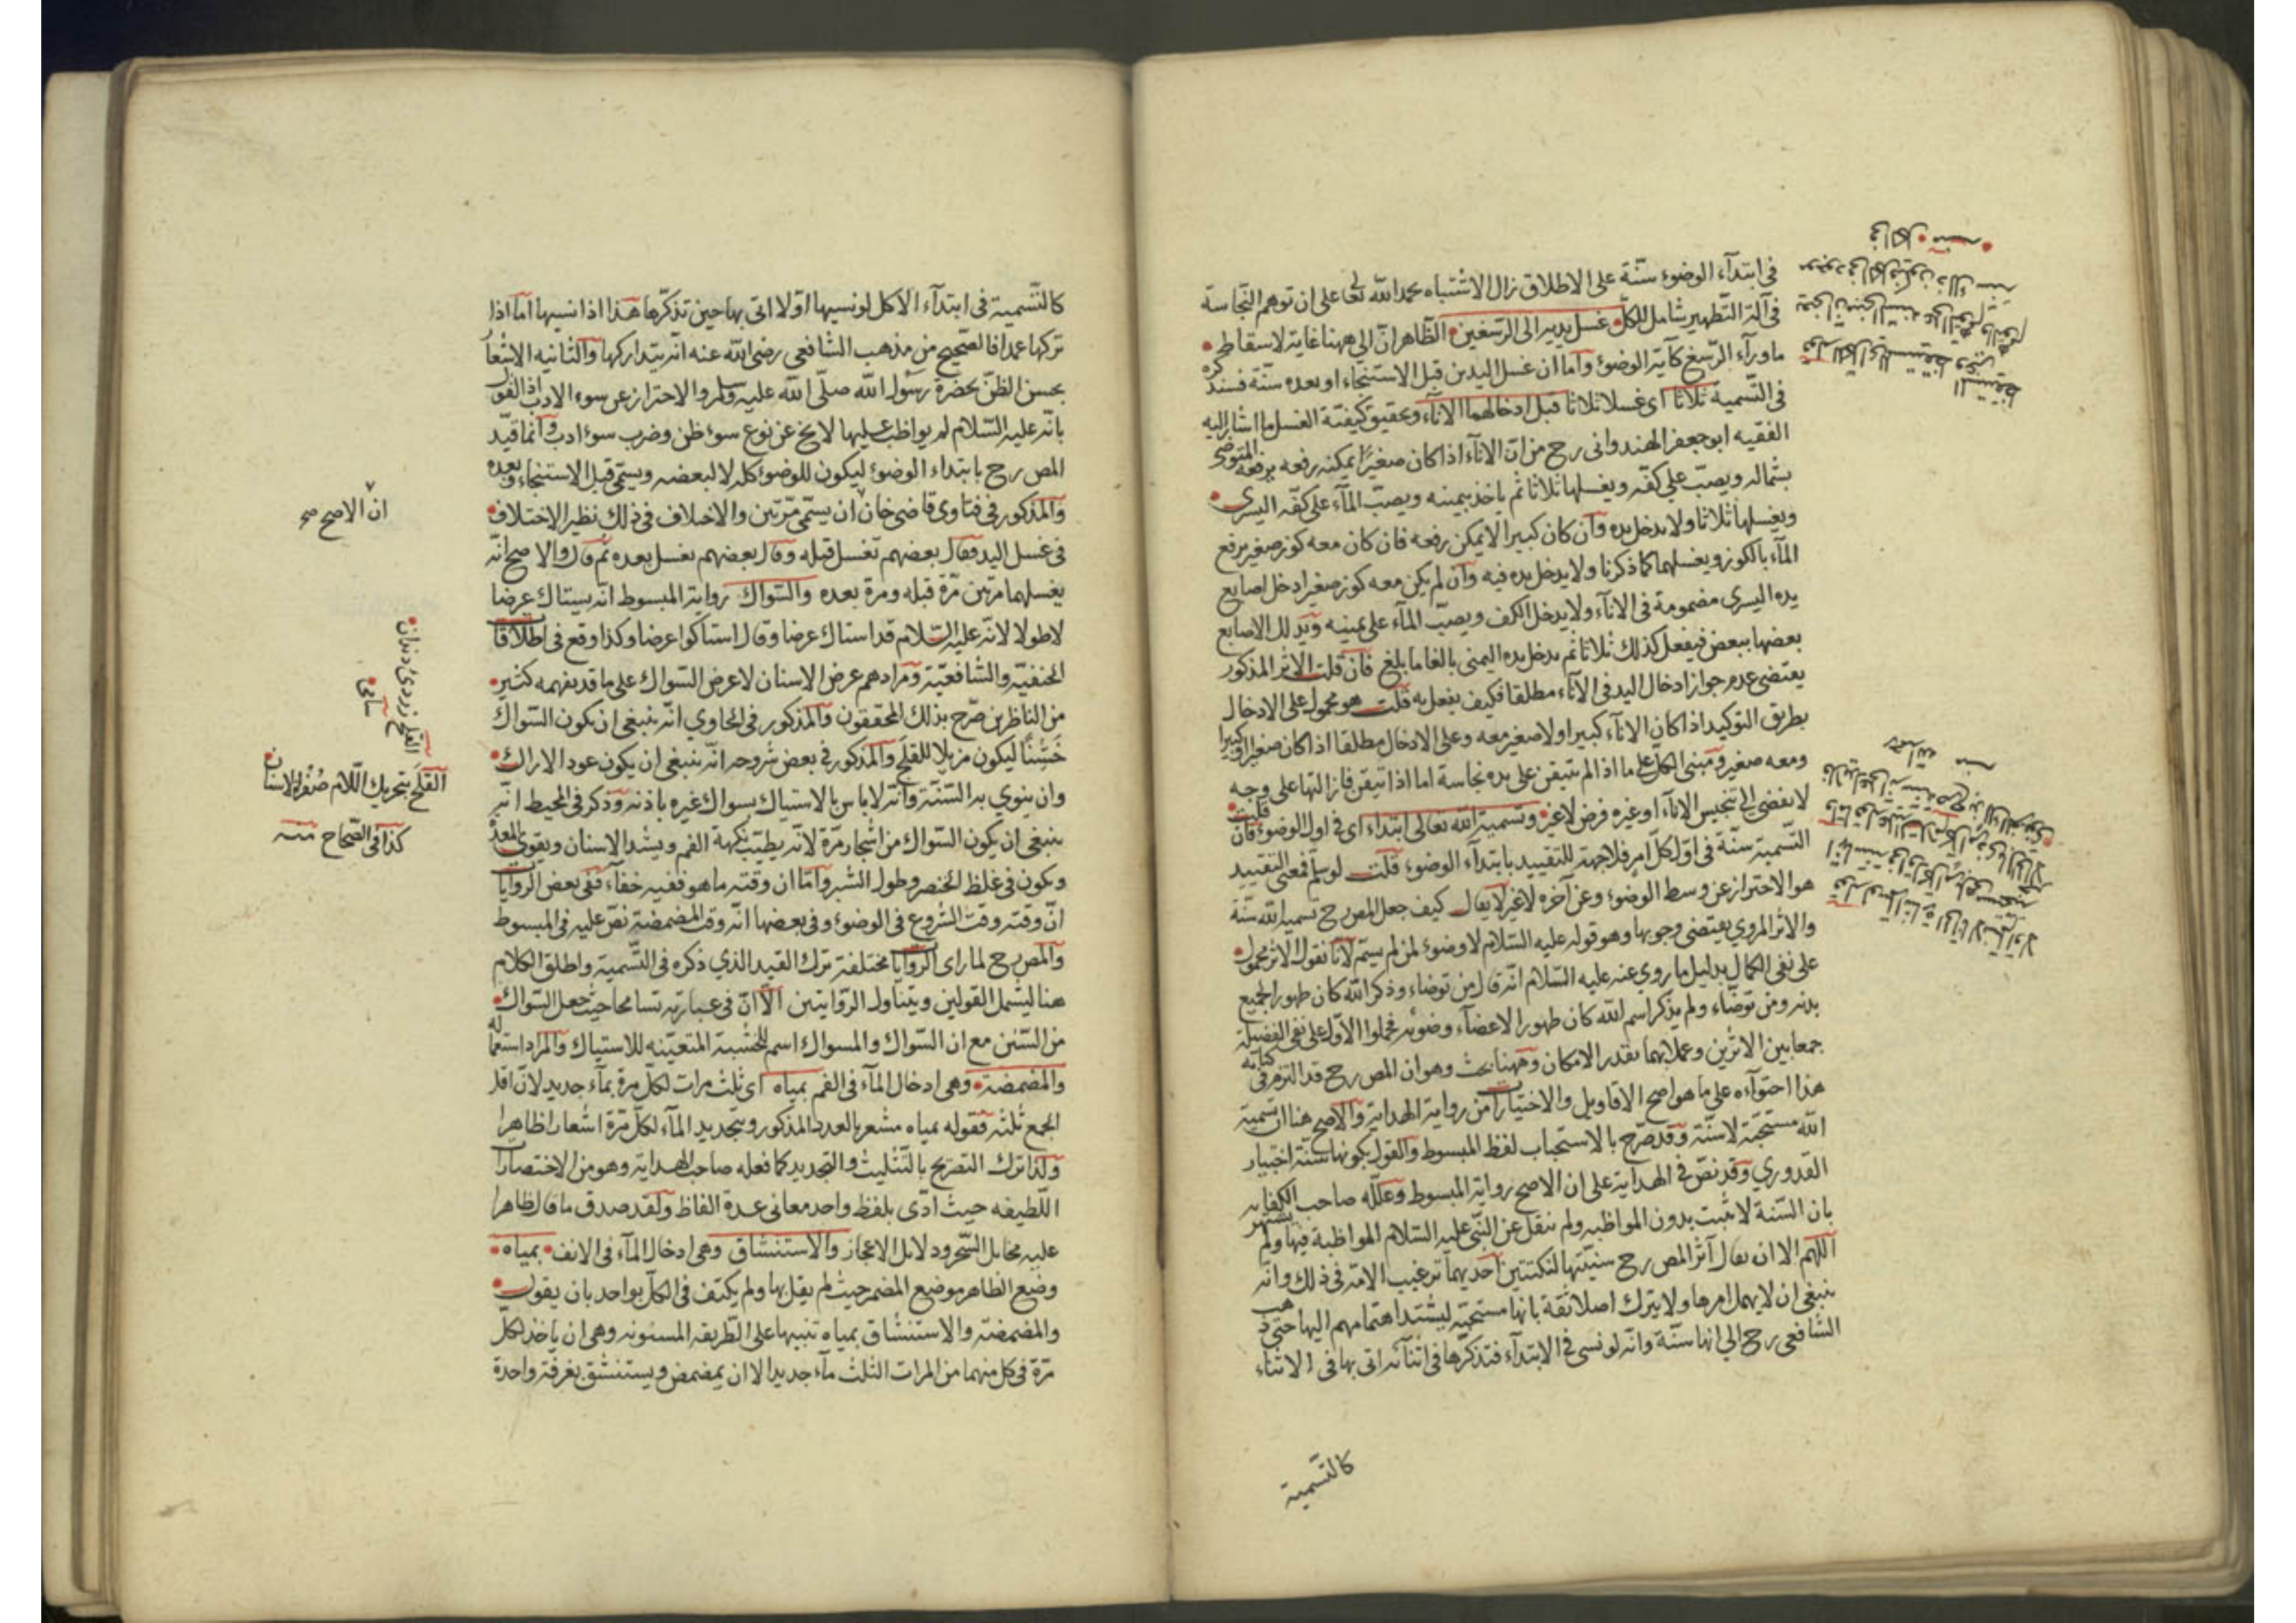 في ابتداء الوضوء سنة على الاطلاق زال الاشتباه بحمد الله تعا على ان توهم النجاسة
في آلة التطهير شامل للكل غسل يديه الى الرسغين الظاهر ان الى ههنا غاية لاسقاط
ما وراء الرسغ كآية الوضوء واما ان غسل اليدين قبل الاستنجاء او بعده سنة فسنذكره
في التسمية ثلاثا اى غسلا ثلاثا قبل ادخالهما الاناء وتحقيق كيفية الغسل ما اشار اليه
الفقيه ابو جعفر الهندوانى رح من ان الاناء اذا كان صغيرا يمكنه رفعه يرفعه المتوضى
بشماله ويصب على كفه ويغسلها ثلاثا ثم ياخذ بيمينه ويصب الماء على كفه اليسرى
ويغسلها ثلاثا ولا يدخل يده وان كان كبيرا لا يمكن رفعه فان كان معه كوز صغير يرفع
الماء بالكوز ويغسلهما كما ذكرنا ولا يدخل يده فيه وان لم يكن معه كوز صغير ادخل اصابع
يده اليسرى مضمومة في الاناء ولا يدخل الكف ويصب الماء على يمينه ويدلك الاصابع
بعضها ببعض فيفعل كذلك ثلاثا ثم يدخل يده اليمنى بالغا ما بلغ فان قلت الاثر المذكور
يقتضى عدم جواز ادخال اليد في الاناء مطلقا فكيف يفعل به قلت هو محمول على الادخال
بطريق التوكيد اذا كان الاناء كبيرا ولا صغير معه وعلى الادخال مطلقا اذا كان صغيرا او كبيرا
ومعه صغير ومبنى الكل على ما اذا لم يتيقن على يده نجاسة اما اذا تيقن فازالتها على وجه
لا يفضى الى تنجيس الاناء او غيره فرض لا غير وتسمية الله تعالى ابتداء اى في اول الوضوء فان قلت
التسمية سنة في اول كل امر فلا جهة للتقييد بابتداء الوضوء قلت لو سلم فمعنى التقييد
هو الاحتراز عن وسط الوضوء وعن آخره لا غير لا يقال كيف جعل المص رح تسمية الله سنة
والاثر المروي يقتضى وجوبها وهو قوله عليه السلام لا وضوء لمن لم يسم لانا نقول الاثر محمول
على نفى الكمال بدليل ما روي عنه عليه السلام انه قال من توضاء وذكر الله كان طهورا لجميع
بدنه ومن توضاء ولم يذكر اسم الله كان طهورا لاعضاء وضوئه فحملوا الاول على نفى الفضيلة
جمعا بين الاثرين وعملا بهما بقدر الامكان وههنا بحث وهو ان المص رح قد التزم في كتابه
هذا احتواءه على ما هو اصح الاقاويل والاختيارات من رواية الهداية والاصح هنا ان تسمية
الله مستحبة لا سنة وقد صرح بالاستحباب لفظ المبسوط والقول بكونها سنة اختيار
القدوري وقد نص في الهداية على ان الاصح رواية المبسوط وعلله صاحب الكفاية
بان السنة لا تثبت بدون المواظبه ولم ينقل عن النبي عليه السلام المواظبة فيها ولم يشتهر
اللهم الا ان يقال آثر المص رح سنيتها لنكتتين احديهما ترغيب الامة في ذلك وانه
ينبغى ان لا يهمل امرها ولا يترك اصلا ثقة بانها مستحبة ليشتد اهتمامهم اليها حتى ذهب
الشافعى رح الى انها سنة وانه لو نسى في الابتداء فتذكرها في اثنائه اتى بها في الاثناء
كالتسمية
كالتسمية في ابتداء الاكل لو نسيها اولا اتى بها حين تذكرها هذا اذا نسيها اما اذا
تركها عمدا فالصحيح من مذهب الشافعى رضى الله عنه انه يتداركها والثانيه الاشعار
بحسن الظن بحضرة رسول الله صلى الله عليه وسلم والاحتراز عن سوء الادب اذ القول
بانه عليه السلام لم يواظب عليها لا يخ عن نوع سوء ظن وضرب سوء ادب وانما قيد
المص رح بابتداء الوضوء ليكون للوضوء كله لا لبعضه ويسمى قبل الاستنجاء وبعده
والمذكور في فتاوى قاضى خان ان يسمى مرتين والاختلاف في ذلك نظير الاختلاف
في غسل اليد فقال بعضهم تغسل قبله وقال بعضهم تغسل بعده ثم قال والاصح انه
يغسلهما مرتين مرة قبله ومرة بعده والسواك رواية المبسوط انه يستاك عرضا
لا طولا لانه عليه السلام قد استاك عرضا وقال استاكوا عرضا وكذا وقع في اطلاقات
الحنفية والشافعية ومرادهم عرض الاسنان لا عرض السواك على ما قد يفهمه كثير
من الناظرين صرح بذلك المحققون والمذكور في الحاوي انه ينبغى ان يكون السواك
خشنا ليكون مزيلا للقلح والمذكور في بعض شروحه انه ينبغى ان يكون عود الاراك
وان ينوي به السنة وانه لا باس بالاستياك بسواك غيره باذنه وذكر في المحيط انه
ينبغى ان يكون السواك من اشجار مرة لانه يطيب نكهة الفم ويشد الاسنان ويقوى المعدة
ويكون في غلظ الخنصر وطول الشبر واما ان وقته ما هو ففيه خفاء ففي بعض الروايات
ان وقته وقت الشروع في الوضوء وفي بعضها انه وقت المضمضة نص عليه في المبسوط
والمص رح لما راى الروايات مختلفة ترك القيد الذي ذكره في التسمية واطلق الكلام
هنا ليشمل القولين ويتناول الروايتين الا ان في عبارته تسامحا حيث جعل السواك
من السنن مع ان السواك والمسواك اسم للخشبة المتعينه للاستياك والمراد استعماله
والمضمضة وهي ادخال الماء في الفم بمياه اى ثلث مرات لكل مرة بماء جديد لان اقل
الجمع ثلثه فقوله بمياه مشعر بالعدد المذكور وبتجديد الماء لكل مرة اشعارا ظاهرا
ولذا ترك التصريح بالتثليث والتجديد كما فعله صاحب الهداية وهو من الاختصارات
اللطيفه حيث ادى بلفظ واحد معانى عدة الفاظ ولقد صدق ما قال ظاهرا
عليه مخايل السحر ودلايل الاعجاز والاستنشاق وهي ادخال الماء في الانف بمياه
وضع الظاهر موضع المضمر حيث لم يقل بها ولم يكتف في الكل بواحد بان يقول
والمضمضة والاستنشاق بمياه تنبيها على الطريقه المسنونه وهي ان ياخذ لكل
مرة في كل منهما من المرات الثلث ماء جديدا لا ان يمضمض ويستنشق بغرفة واحدة
ان الاصح صح
القلح زردئ دندان
سامى
القلح بتحريك اللام صفرة الاسنان
كذا في الصحاح منه